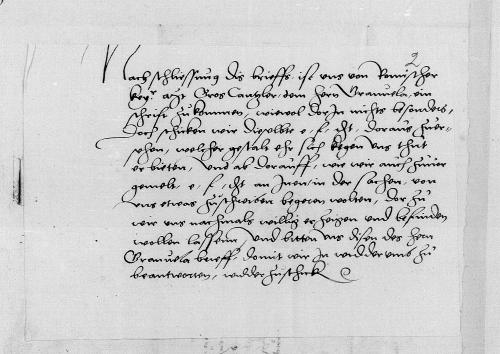 Nach schliessung dis brieffs ist uns von Romischer
key. mayt Gros Cantzler dem hern Granuela, ein
schrifft zukommen, wiewol dorin nichts besonders,
Doch schicken wir dieselbte e. l. hir, doraus zuver-
sehen, welcher gestalt ehr sich kegen uns thut
erbieten, und ab dorauff, wie wir auch zuuor
gemelt, e. l. an Inen, in der sachen, von
uns etwas zuschreiben begeren wolten, dor zu
wir uns nachmals willig erzeigen und befinden
wollen lassenn, Und bitten uns disen des hern
Granuela brieff, domit wir In widderumb zu
beantworten, widder zuschick